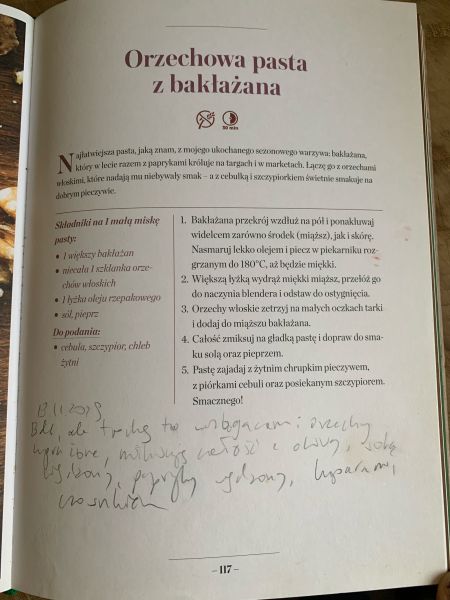 Orzechowa pasta
z bakłażana
30 min
Najłatwiejsza pasta, jaką znam, z mojego ukochanego sezonowego warzywa: bakłażana,
który w lecie razem z paprykami króluje na targach i w marketach. Łączę go z orzechami
włoskimi, które nadają mu niebywały smak – a z cebulką i szczypiorkiem świetnie smakuje na
dobrym pieczywie.
Składniki na 1 małą miskę
pasty:
• 1 większy bakłażan
• niecała 1 szklanka orze-
chów włoskich
• 1 łyżka oleju rzepakowego
• sól, pieprz
Do podania:
• cebula, szczypior, chleb
żytni
1. Bakłażana przekrój wzdłuż na pół i ponakłuwaj
widelcem zarówno środek (miąższ), jak i skórę.
Nasmaruj lekko olejem i piecz w piekarniku roz-
grzanym do 180°C, aż będzie miękki.
2. Większą łyżką wydrąż miękki miąższ, przełóż go
do naczynia blendera i odstaw do ostygnięcia.
3. Orzechy włoskie zetrzyj na małych oczkach tarki
i dodaj do miąższu bakłażana.
4. Całość zmiksuj na gładką pastę i dopraw do sma-
ku solą oraz pieprzem.
5. Pastę zajadaj z żytnim chrupkim pieczywem,
z piórkami cebuli oraz posiekanym szczypiorem.
Smacznego!
ale trochę orzechy
całość z oliwą, solą
wędzoną, papryką wędzoną, kaparami,
czosnkiem
– 117 –